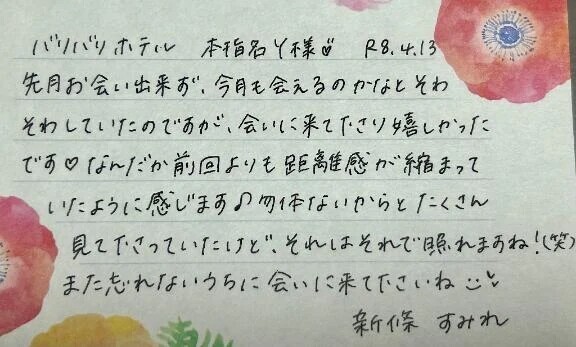 バリバリホテル 本指名Y様♡ R8.4.13
先月お会い出来ず、今月も会えるのかなとそわ
そわしていたのですが、会いに来て下さり嬉しかった
です♡なんだか前回よりも距離感が縮まって
いたように感じます♪勿体ないからとたくさん
見て下さっていたけど、それはそれで照れますね!(笑)
また忘れないうちに会いに来て下さいね
新條 すみれ